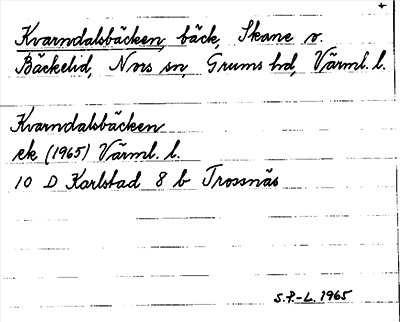 +
Kvarndalsbäcken, bäck, Skane v.
Bäckelid, Nors sn, Grums hd, Värml. l.
Kvarndalsbäcken
ek (1965) Värml. l.
10 D Karlstad 8 b Trossnäs
S.P.-L. 1965